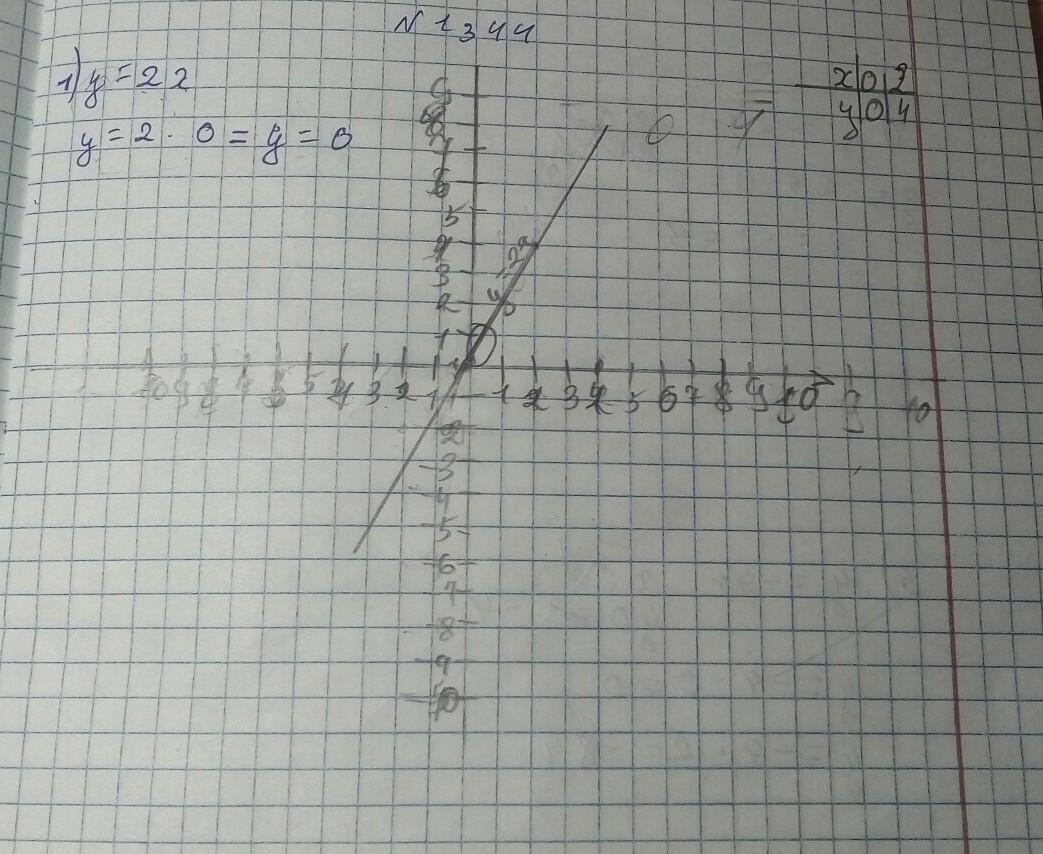 N 1344
1) y = 2x
x 0 2
y 0 4
y = 2 · 0 = y = 0
9
8
7
6
5
4
3
2
1
y = 2x
0
10 9 8 7 6 5 4 3 2 1 1 2 3 4 5 6 7 8 9 10
2
-3
-4
5
-6
-7
-8
-9
-10